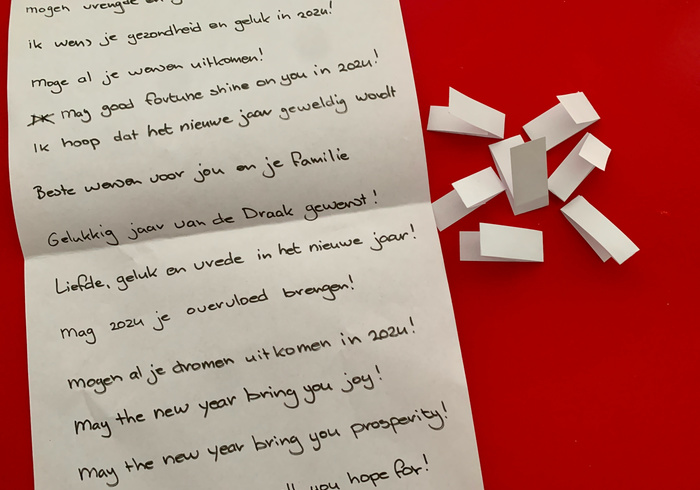 mogen vreugde en
ik wens je gezondheid en geluk in 2024!
moge al je wensen uitkomen!
may good fortune shine on you in 2024!
Ik hoop dat het nieuwe jaar geweldig wordt
Beste wensen voor jou en je familie
Gelukkig jaar van de Draak gewenst!
Liefde, geluk en vrede in het nieuwe jaar!
mag 2024 je overvloed brengen!
mogen al je dromen uitkomen in 2024!
may the new year bring you joy!
may the new year bring you prosperity!
you hope for!